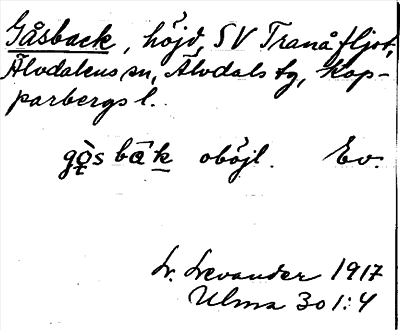 Gåsback, höjd, SV Tranåfljot,
Älvdalens sn, Älvdals tg, Kop-
parbergs l.
gòs bâk oböjl. Ev.
L. Levander 1917
Ulma 301:4